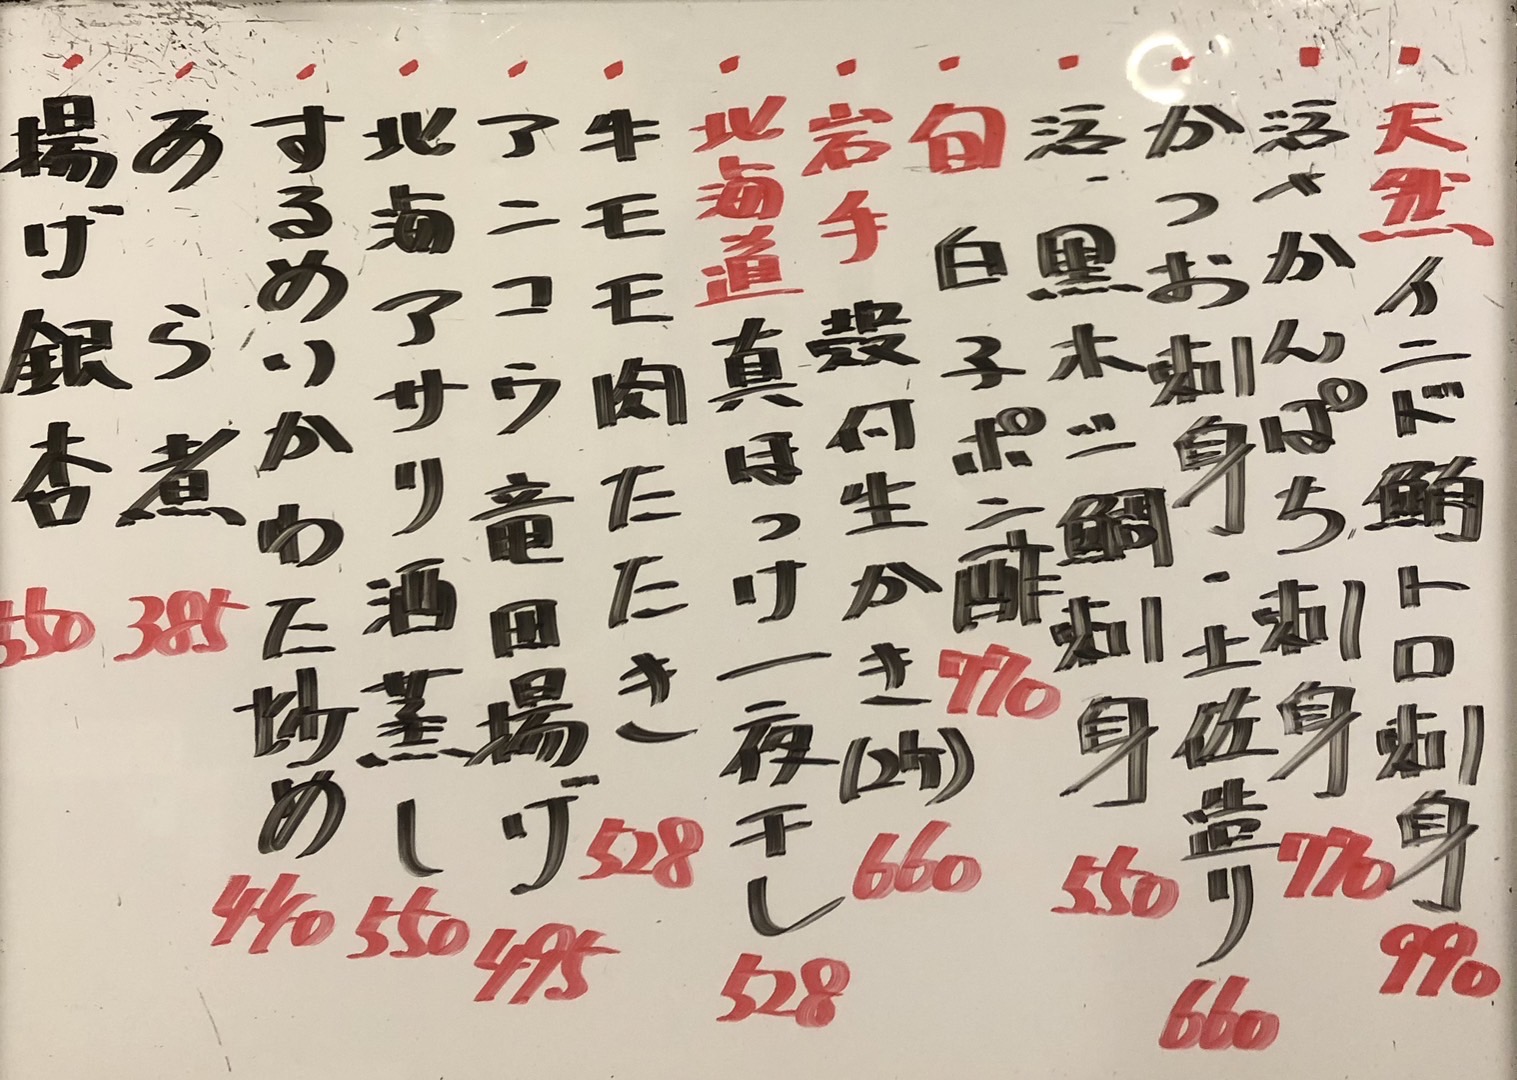 ・天然インド鮪トロ刺身 990
・活〆かんぱち刺身 770
・かつお刺身・土佐造り 660
・活〆黒ホシ鯛刺身 550
・旬 白子ポン酢 770
・岩手 殻付生かき(2ケ) 660
・北海道真ほっけ一夜干し 528
・牛モモ肉たたき 528
・アンコウ竜田揚げ 495
・北海アサリ酒蒸し 550
・するめいかわた炒め 440
・あら煮 385
・揚げ銀杏 550